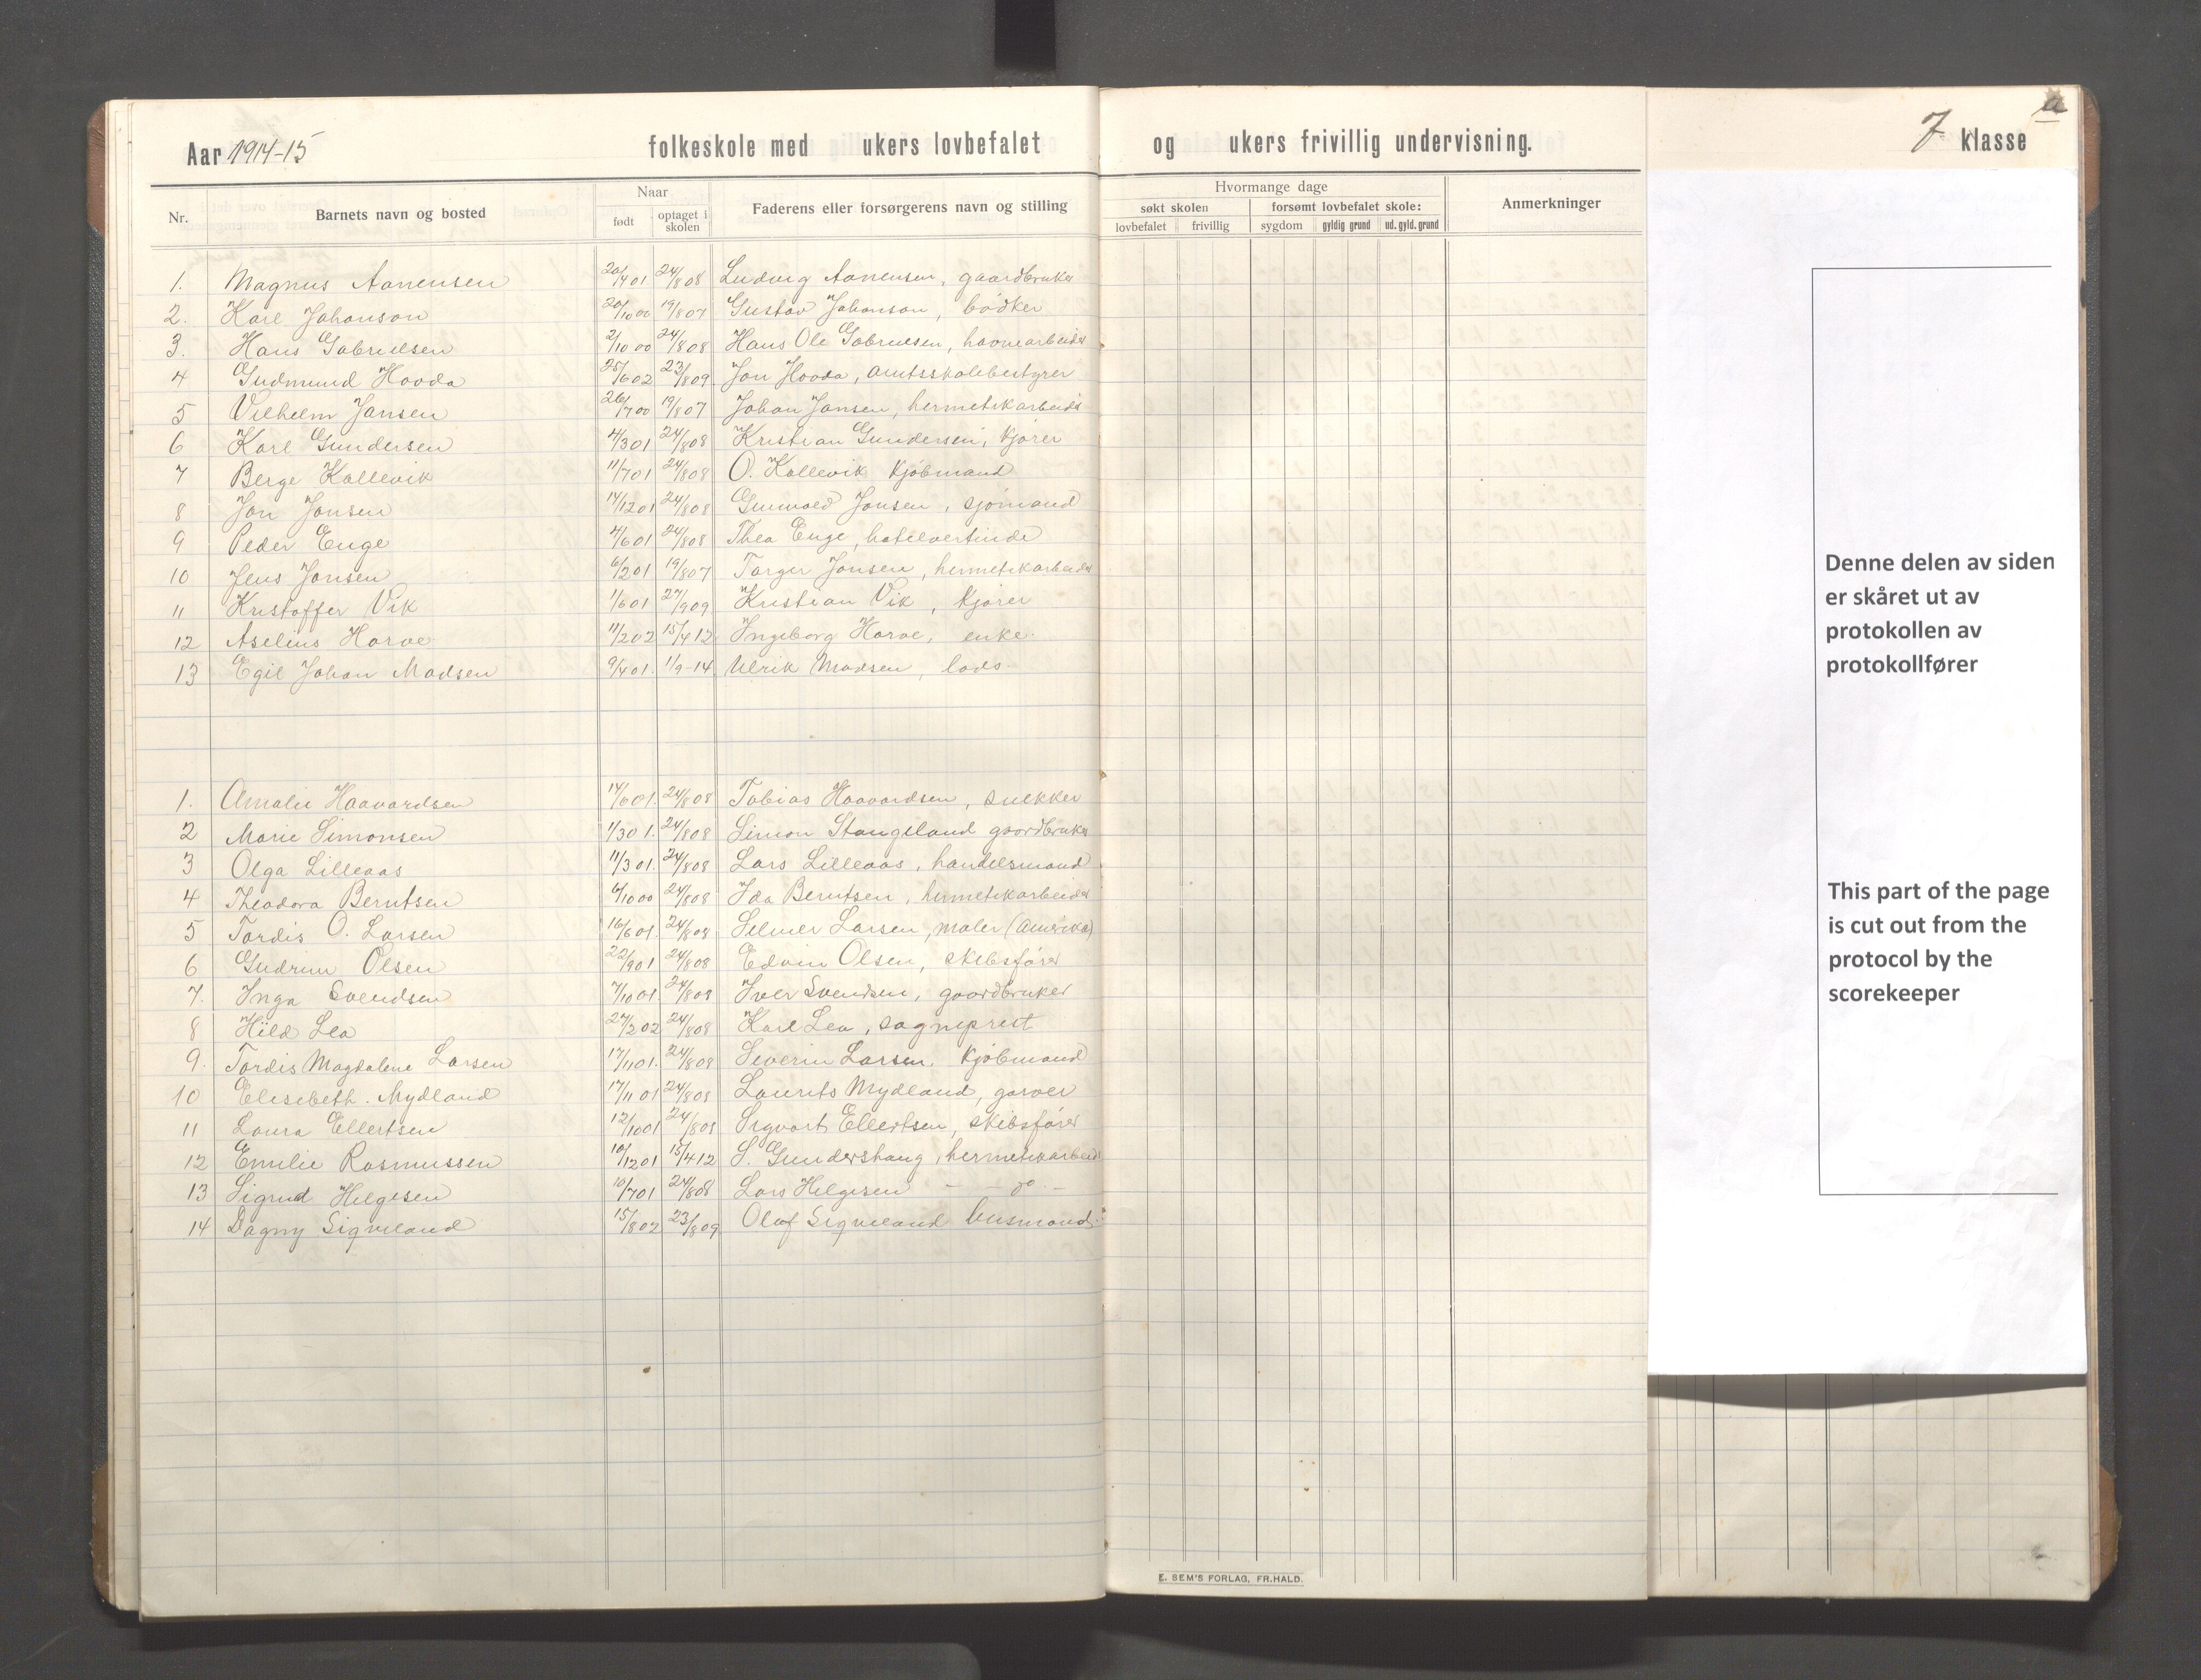 Aar 1914-15 folkeskole med ukers lovbefalet og ukers frivillig undervisning. 7 klasse a
Nr. Barnets navn og bosted Naar født optaget i skolen Faderens eller forsørgerens navn og stilling Hvormange dage søkt skolen lovbefalet frivillig forsømt lovbefalet skole: sygdom gyldig grund ud. gyld. grund Anmerkninger
1. Magnus Aanensen 20/4 01 24/8 08 Ludvig Aanensen, gaardbruker
2. Karl Johanson 20/10 00 19/8 07 Gustav Johanson, bödker
3. Hans Gabrielsen 2/10 00 24/8 08 Hans Ole Gabrielsen, havnearbeider
4 Gudmund Hovda 25/6 02 23/8 09 Jon Hovda, amtsskolebestyrer
5 Vilhelm Jansen 26/7 00 19/8 07 Johan Jansen, hermetikarbeider
6 Karl Gundersen 4/3 01 24/8 08 Kristian Gundersen, kjører
7 Berge Kallevik 11/7 01 24/8 08 O. Kallevik kjöbmand
8 Jon Jonsen 14/12 01 24/8 08 Gunvald Jonsen, sjömand
9 Peder Enge 4/6 01 24/8 08 Thea Enge, hotelvertinde
10 Jens Jonsen 6/2 01 19/8 07 Torger Jonsen, hermetikarbeider
11 Kristoffer Vik 1/6 01 27/9 09 Kristian Vik, kjører
12 Aselius Harve 11/2 02 15/4 12 Ingeborg Harve, enke.
13 Egil Johan Madsen 9/4 01. 1/9-14 Ulrik Madsen, lods.
1. Amalie Haavardsen 14/6 01. 24/8 08 Tobias Haavardsen, snekker
2 Marie Simonsen 1/3 01. 24/8 08 Simon Stangeland gaardbruker
3 Olga Lilleaas 11/3 01. 24/8 08 Lars Lilleaas, handelsmand
4 Theodora Berntsen 6/10 00 24/8 08 Ida Berntsen, hermetikarbeider
5 Tordis O. Larsen 16/6 01. 24/8 08 Selmer Larsen, maler (Amerika)
6 Gudrun Olsen 22/9 01 24/8 08 Edvin Olsen, skibsfører
7. Inga Svendsen 7/10 01. 24/8 08 Iver Svendsen, gaardbruker
8 Hild Lea 27/2 02 24/8 08 Karl Lea, sogneprest
9. Tordis Magdalene Larsen 17/11 01. 24/8 08 Severin Larsen, kjöbmand
10 Elisebeth. Mydland 17/11 01 24/8 08 Laurits Mydland, garver
11 Laura Ellertsen 12/10 01 24/8 08 Sigvart Ellertsen, skibsfører
12 Emilie Rasmussen 10/12 01 15/4 12 S. Gundershaug, hermetikarbeid
13 Sigrid Helgesen 10/7 01 24/8 08 Lars Helgesen - - do -
14 Dagny Sigveland 15/8 02 23/8 09 Olaf Sigveland husmand.
E. SEM'S FORLAG, FR.HALD.
Denne delen av siden
er skåret ut av
protokollen av
protokollfører
This part of the page
is cut out from the
protocol by the
scorekeeper